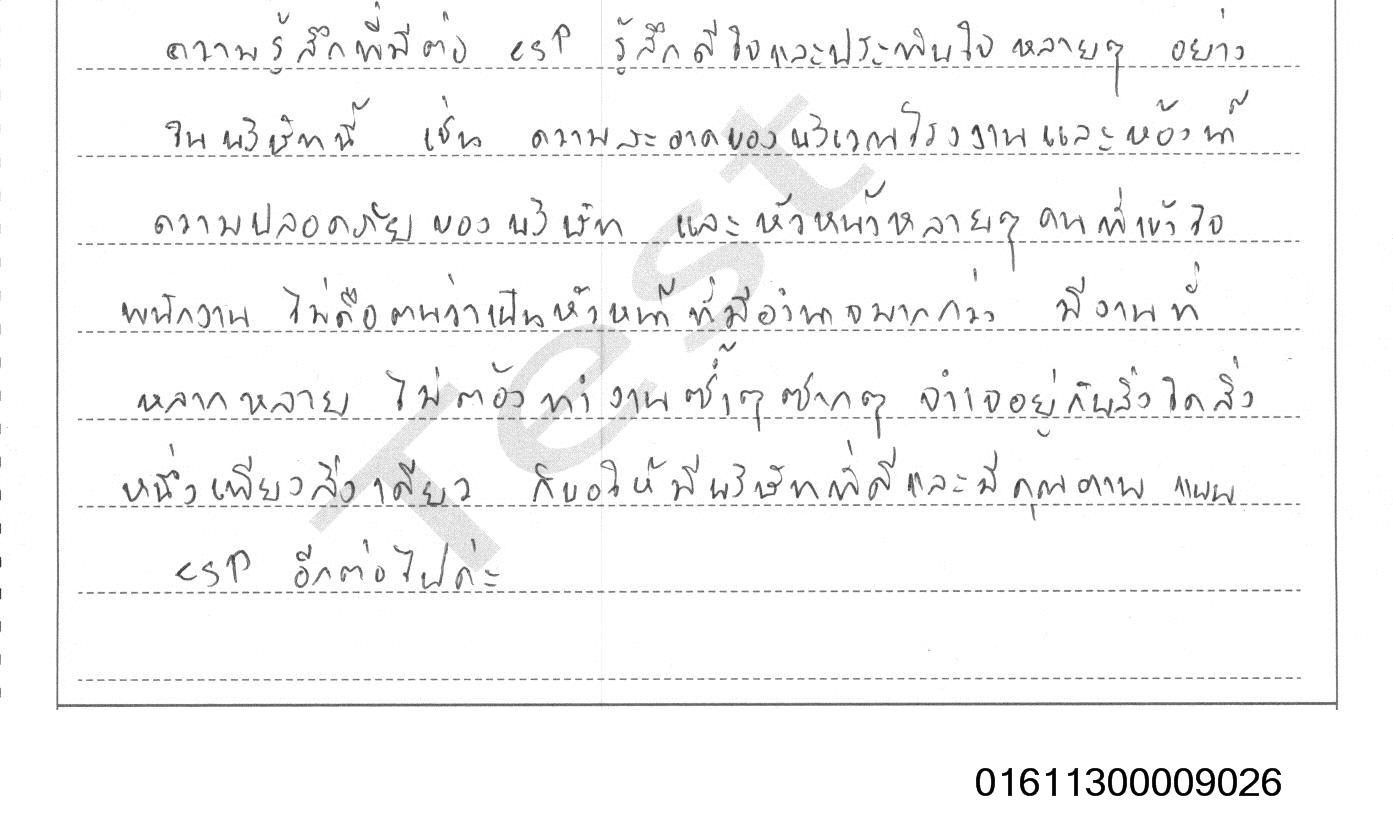 ความรู้สึกที่มีต่อ CSP รู้สึกดีใจและประทับใจหลายๆ อย่าง
ในบริษัทนี้ เช่น ความสะอาดของบริเวณโรงงานและห้องน้ำ
ความปลอดภัยของบริษัท และหัวหน้าหลายๆ คนที่เข้าใจ
พนักงาน ไม่ถือตนว่าเป็นหัวหน้าที่มีอำนาจมากกว่า มีงานที่
หลากหลาย ไม่ต้องทำงานซ้ำๆ ซากๆ จำเจอยู่กับสิ่งใดสิ่ง
หนึ่งเพียงสิ่งเดียว ก็ขอให้มีบริษัทที่ดีและมีคุณภาพ แบบ
CSP อีกต่อไปค่ะ
Test
01611300009026